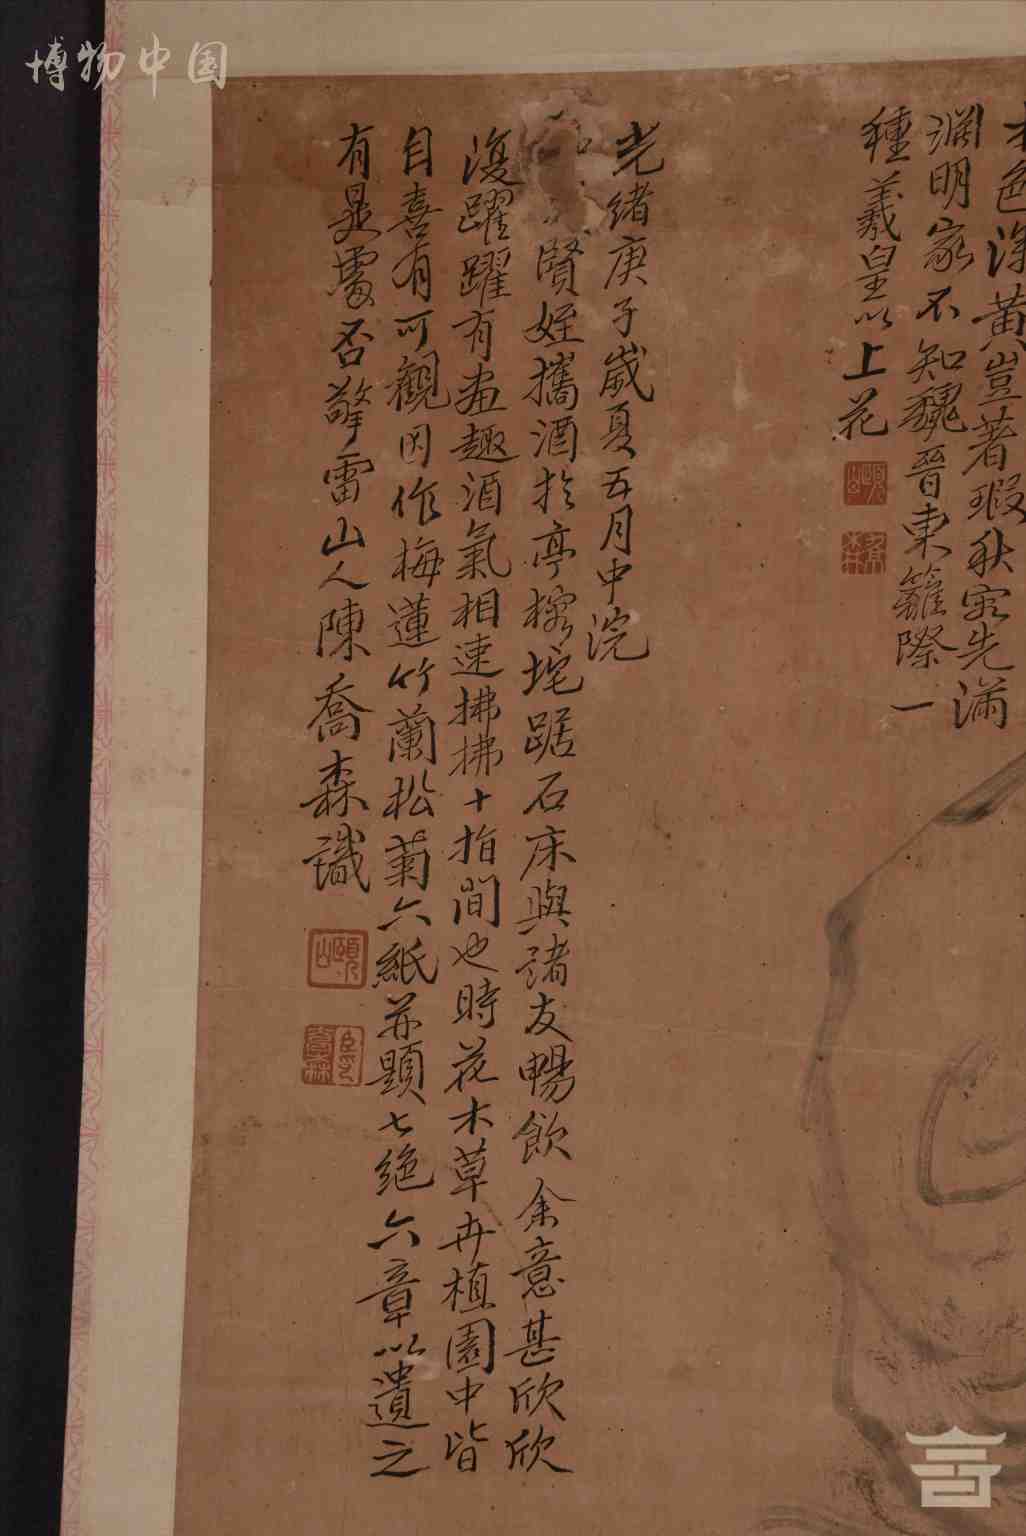 博物中国
色深黄豈著瑕秋容先滿
淵明家不知魏晉東籬際一
種羲皇以上花
光緒庚子歲夏五月中浣
賢姪攜酒於亭榕垞踞石床與諸友暢飲余意甚欣欣
復躍躍有畫趣酒氣相速拂拂十指間也時花木草卉植園中皆
自喜有可觀因作梅蓮竹蘭松菊六紙並題七絕六章以遺之
有是處否擎雷山人陳喬森識